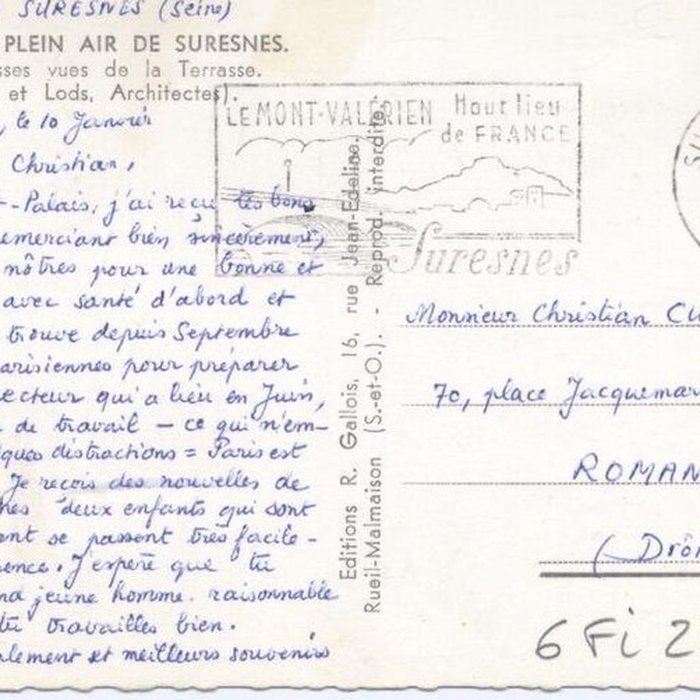 SURESNES (Seine)
PLEIN AIR DE SURESNES.
sses vues de la Terrasse.
et Lods, Architectes).
, le 10 Janvier
Christian,
-Palais, j'ai reçu tes bons
emerciant bien sincèrement,
nôtres pour une bonne et
avec santé d'abord et
trouve depuis Septembre
arisiennes pour préparer
ecteur qui a lieu en Juin,
de travail — ce qui n'em-
ques distractions = Paris est
Je reçois des nouvelles de
mes deux enfants qui sont
ent se passent très facile-
ence. J'espère que tu
nd jeune homme raisonnable
tu travailles bien.
lement et meilleurs souvenirs
Editions R. Gallois, 16, rue Jean-Edeline.
Rueil-Malmaison (S.-et-O.). - Reprod. interdite.
LE MONT-VALÉRIEN Haut lieu
de FRANCE
Suresnes
SU
Monsieur Christian
70, place Jacquemar
ROMAN
(Drôm
6 Fi 2